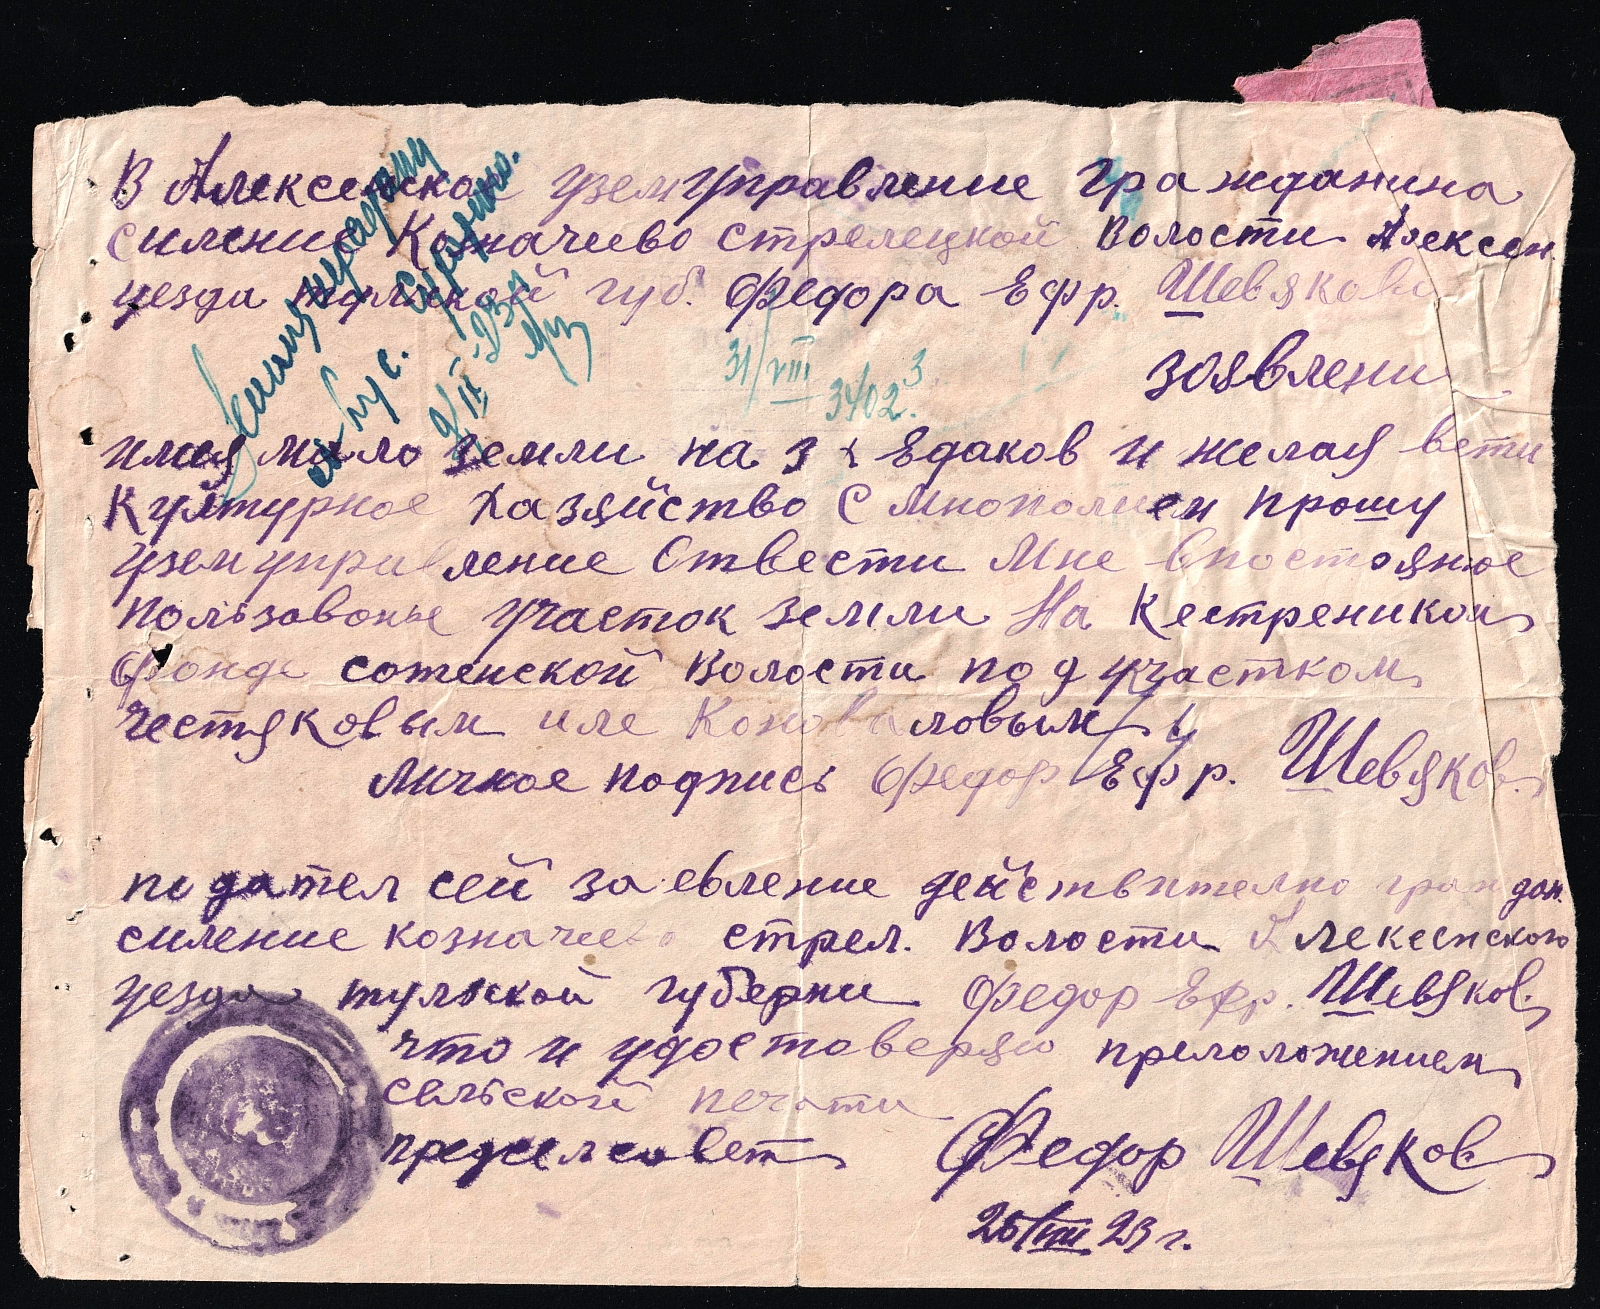 В Алексенской уземуправление гражданина
силение Козначеево стрелецкой Волости Алексен.
уезда тульской губ. Федора Ефр. Шевякова
31/VIII
3402. 3
заявлени
имея мало земли на 3 х Едаков и желая вети
Културное Хазяйство С многополием прошу
уземуправление Отвести Мне впостояное
ползавонье участок земли На Кестреником
Фонде сотенской Волости под участком
честяковым иле Коноваловым
личное подпись Федор Ефр. Шевяков.
податеl сей заевление действително граждан.
силение козначеево стрел. Волости Алексенского
уезда тульской губерни Федор Ефр. Шевяков.
что и удостоверяю прелоложением
сельской печати
предселсовет Федор Шевяков
26/VIII 23 г.